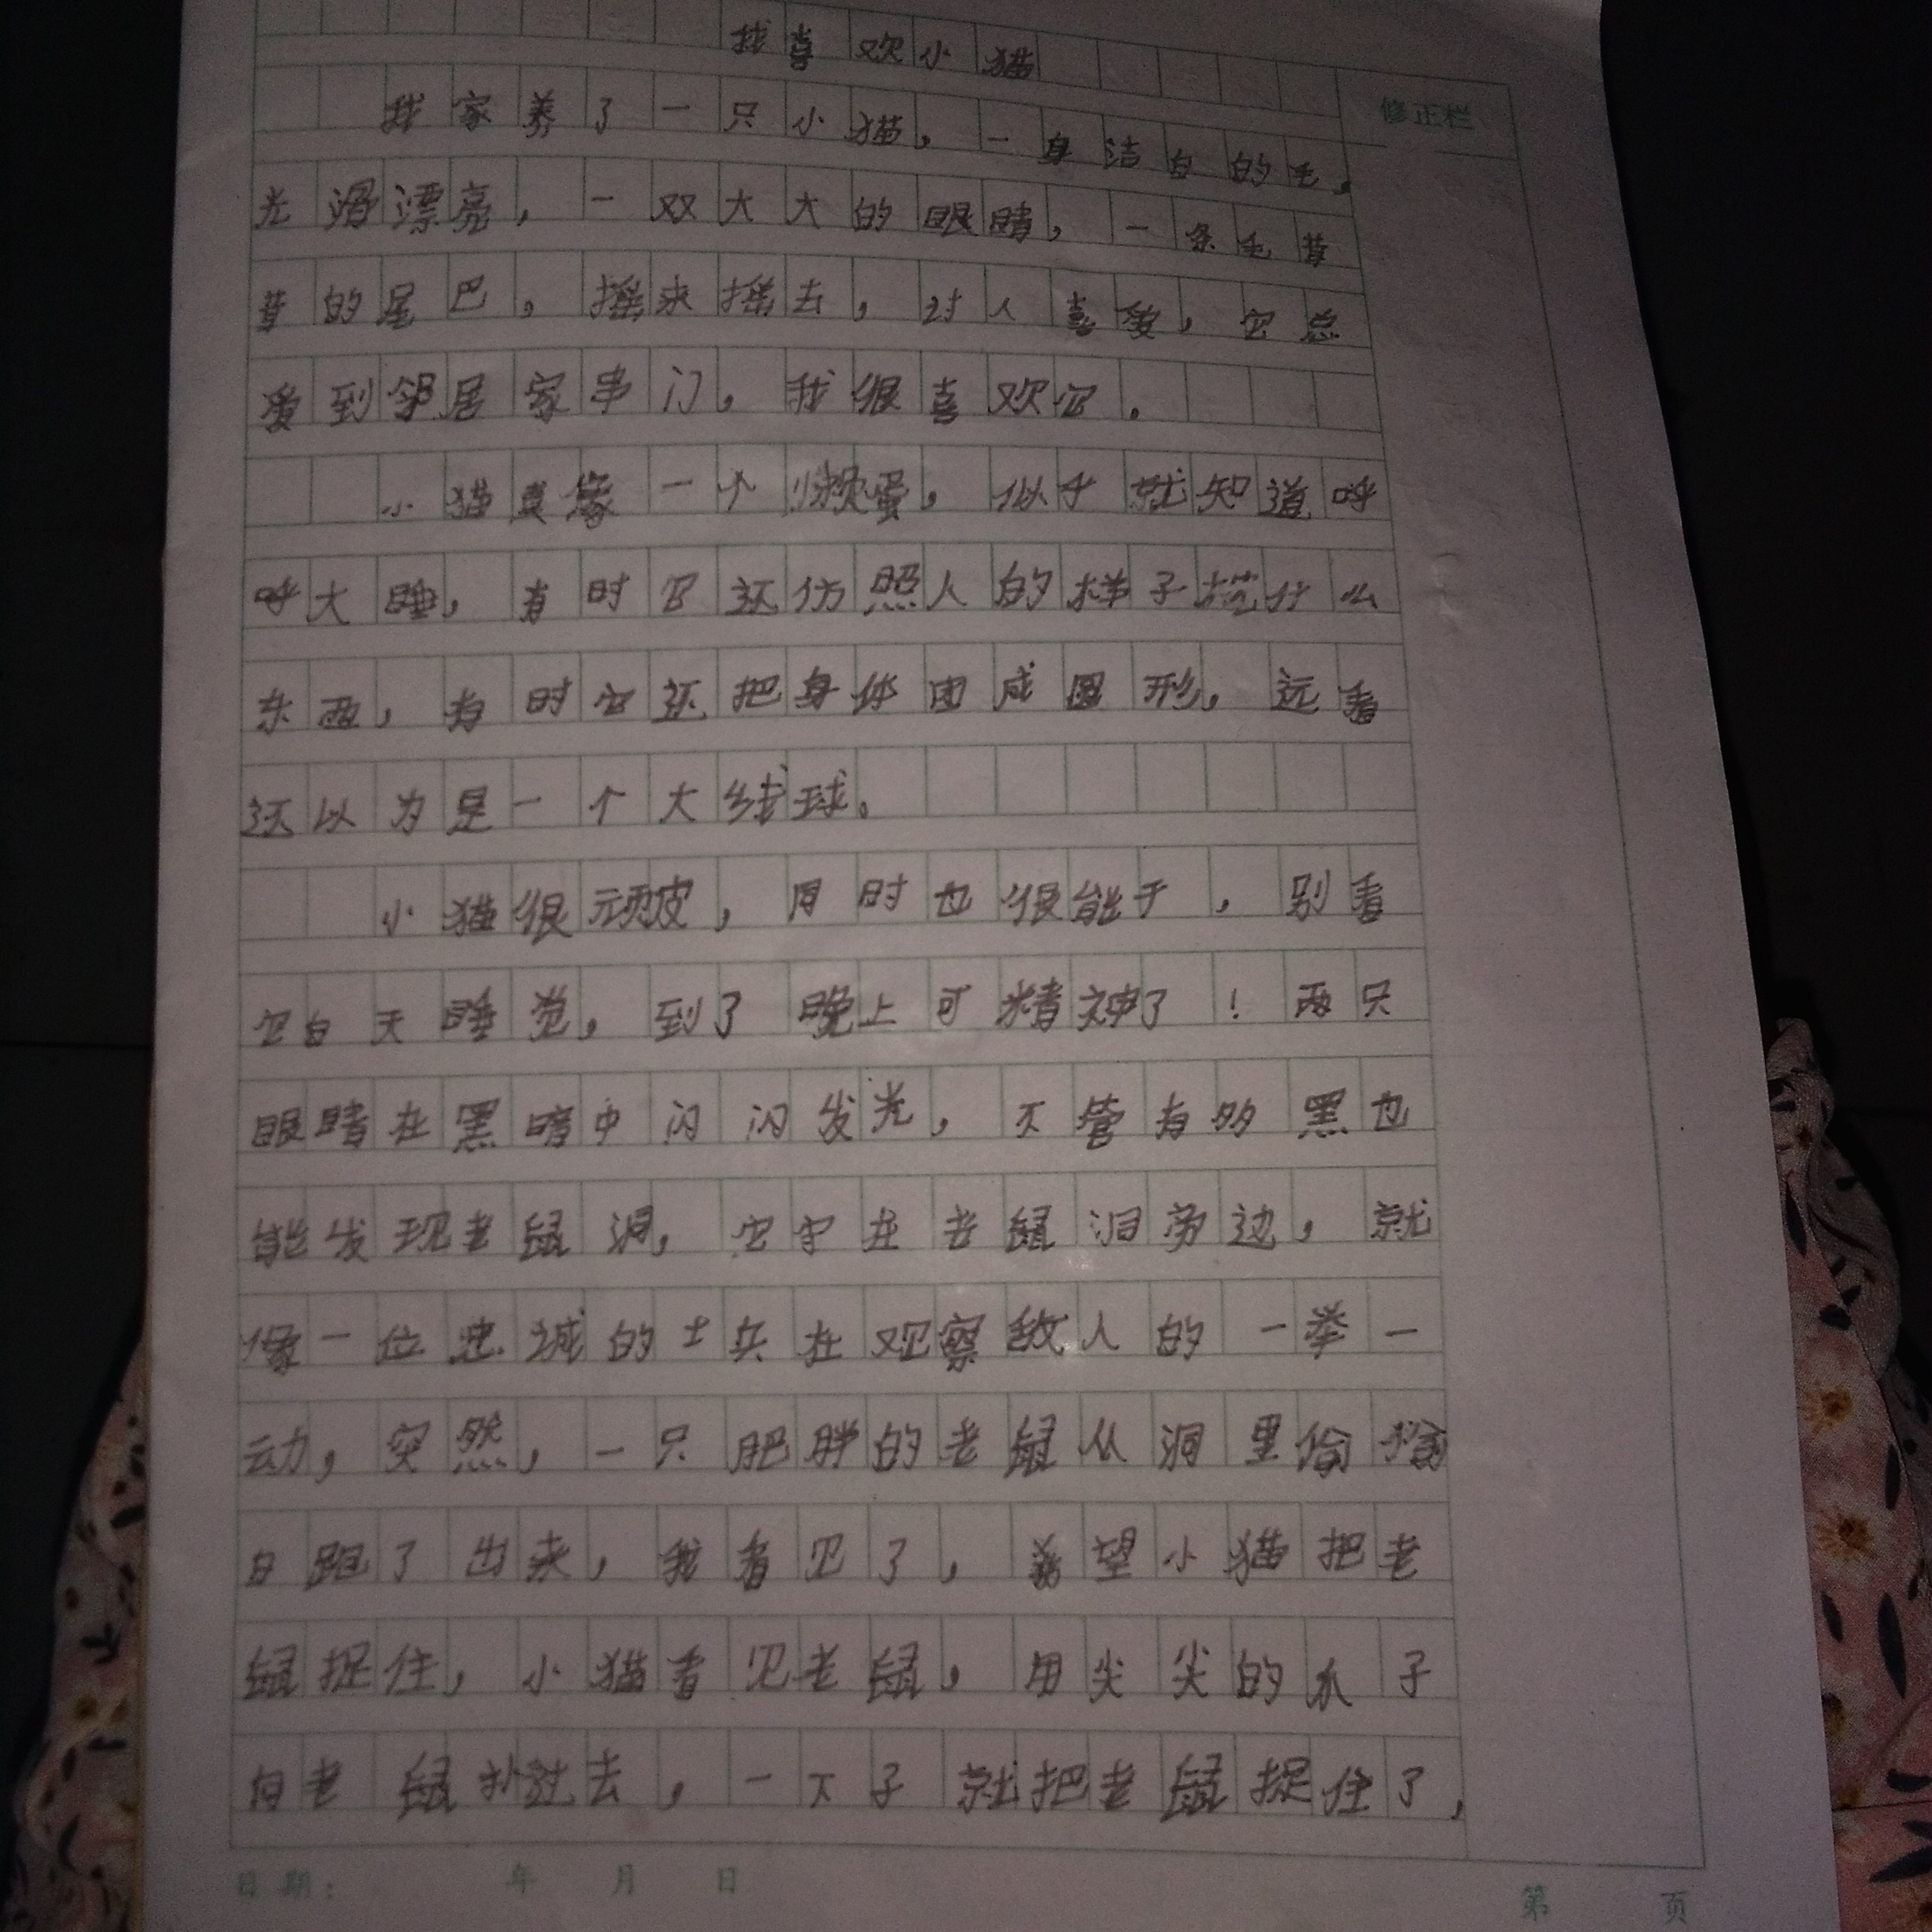 我喜欢小猫
修正栏
我家养了一只小猫,一身洁白的毛,
光滑漂亮,一双大大的眼睛,一条毛茸
茸的尾巴,摇来摇去,讨人喜爱,它总
爱到邻居家串门,我很喜欢它。
小猫真像一个懒蛋,似乎就知道呼
呼大睡,有时它还仿照人的样子挖什么
东西,有时它还把身体团成圆形,远看
还以为是一个大线球。
小猫很顽皮,同时也很能干,别看
它白天睡觉,到了晚上可精神了!两只
眼睛在黑暗中闪闪发光,不管有多黑也
能发现老鼠洞,它守在老鼠洞旁边,就
像一位忠诚的士兵在观察敌人的一举一
动,突然,一只肥胖的老鼠从洞里偷偷
日跑了出来,我看见了,希望小猫把老
鼠捉住,小猫看见老鼠,用尖尖的爪子
向老鼠扑过去,一下子就把老鼠捉住了,
日期: 年 月 日
第 页